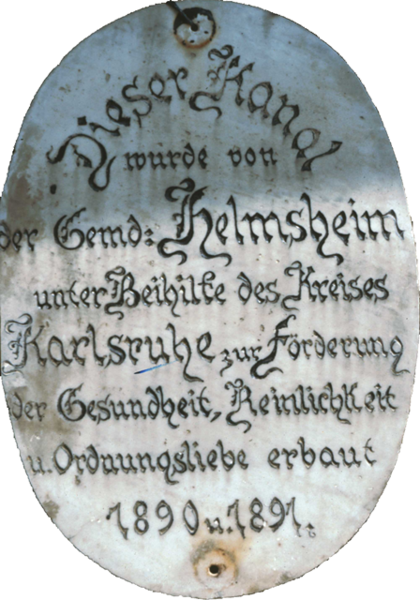 Dieser Kanal
wurde von
der Gemd: Helmsheim
unter Beihilfe des Kreises
Karlsruhe zur Förderung
der Gesundheit, Reinlichkeit
u. Ordnungsliebe erbaut
1890 u. 1891.